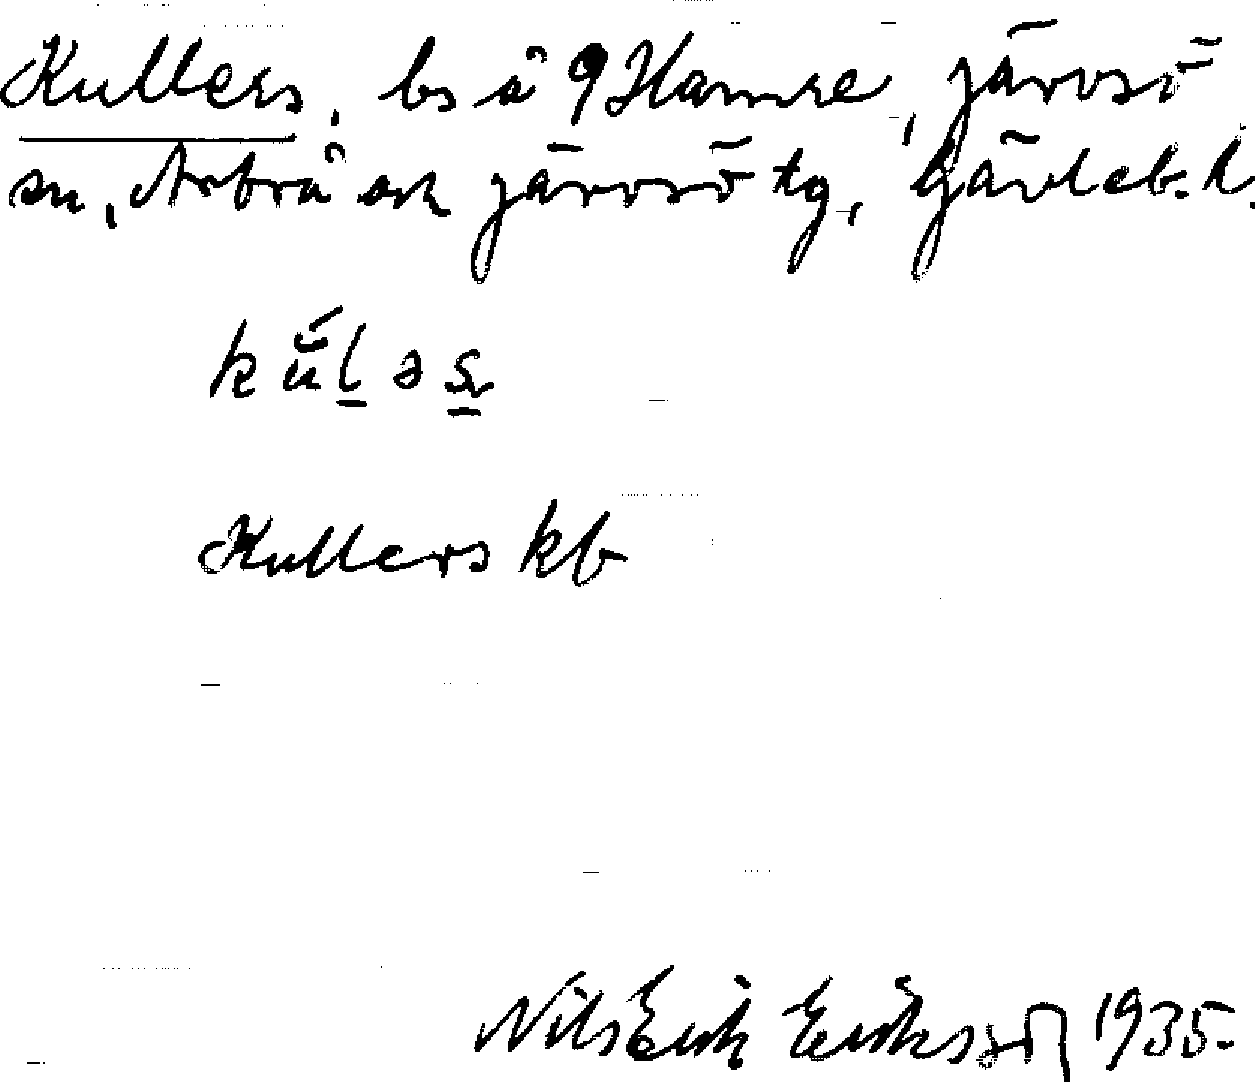 Kullers, bs å 9 Hamre, Järvsö
sn, Arbrå och Järvsö tg, Gävleb. l.
Kullers kb
Nils Erik Eriksson 1935.